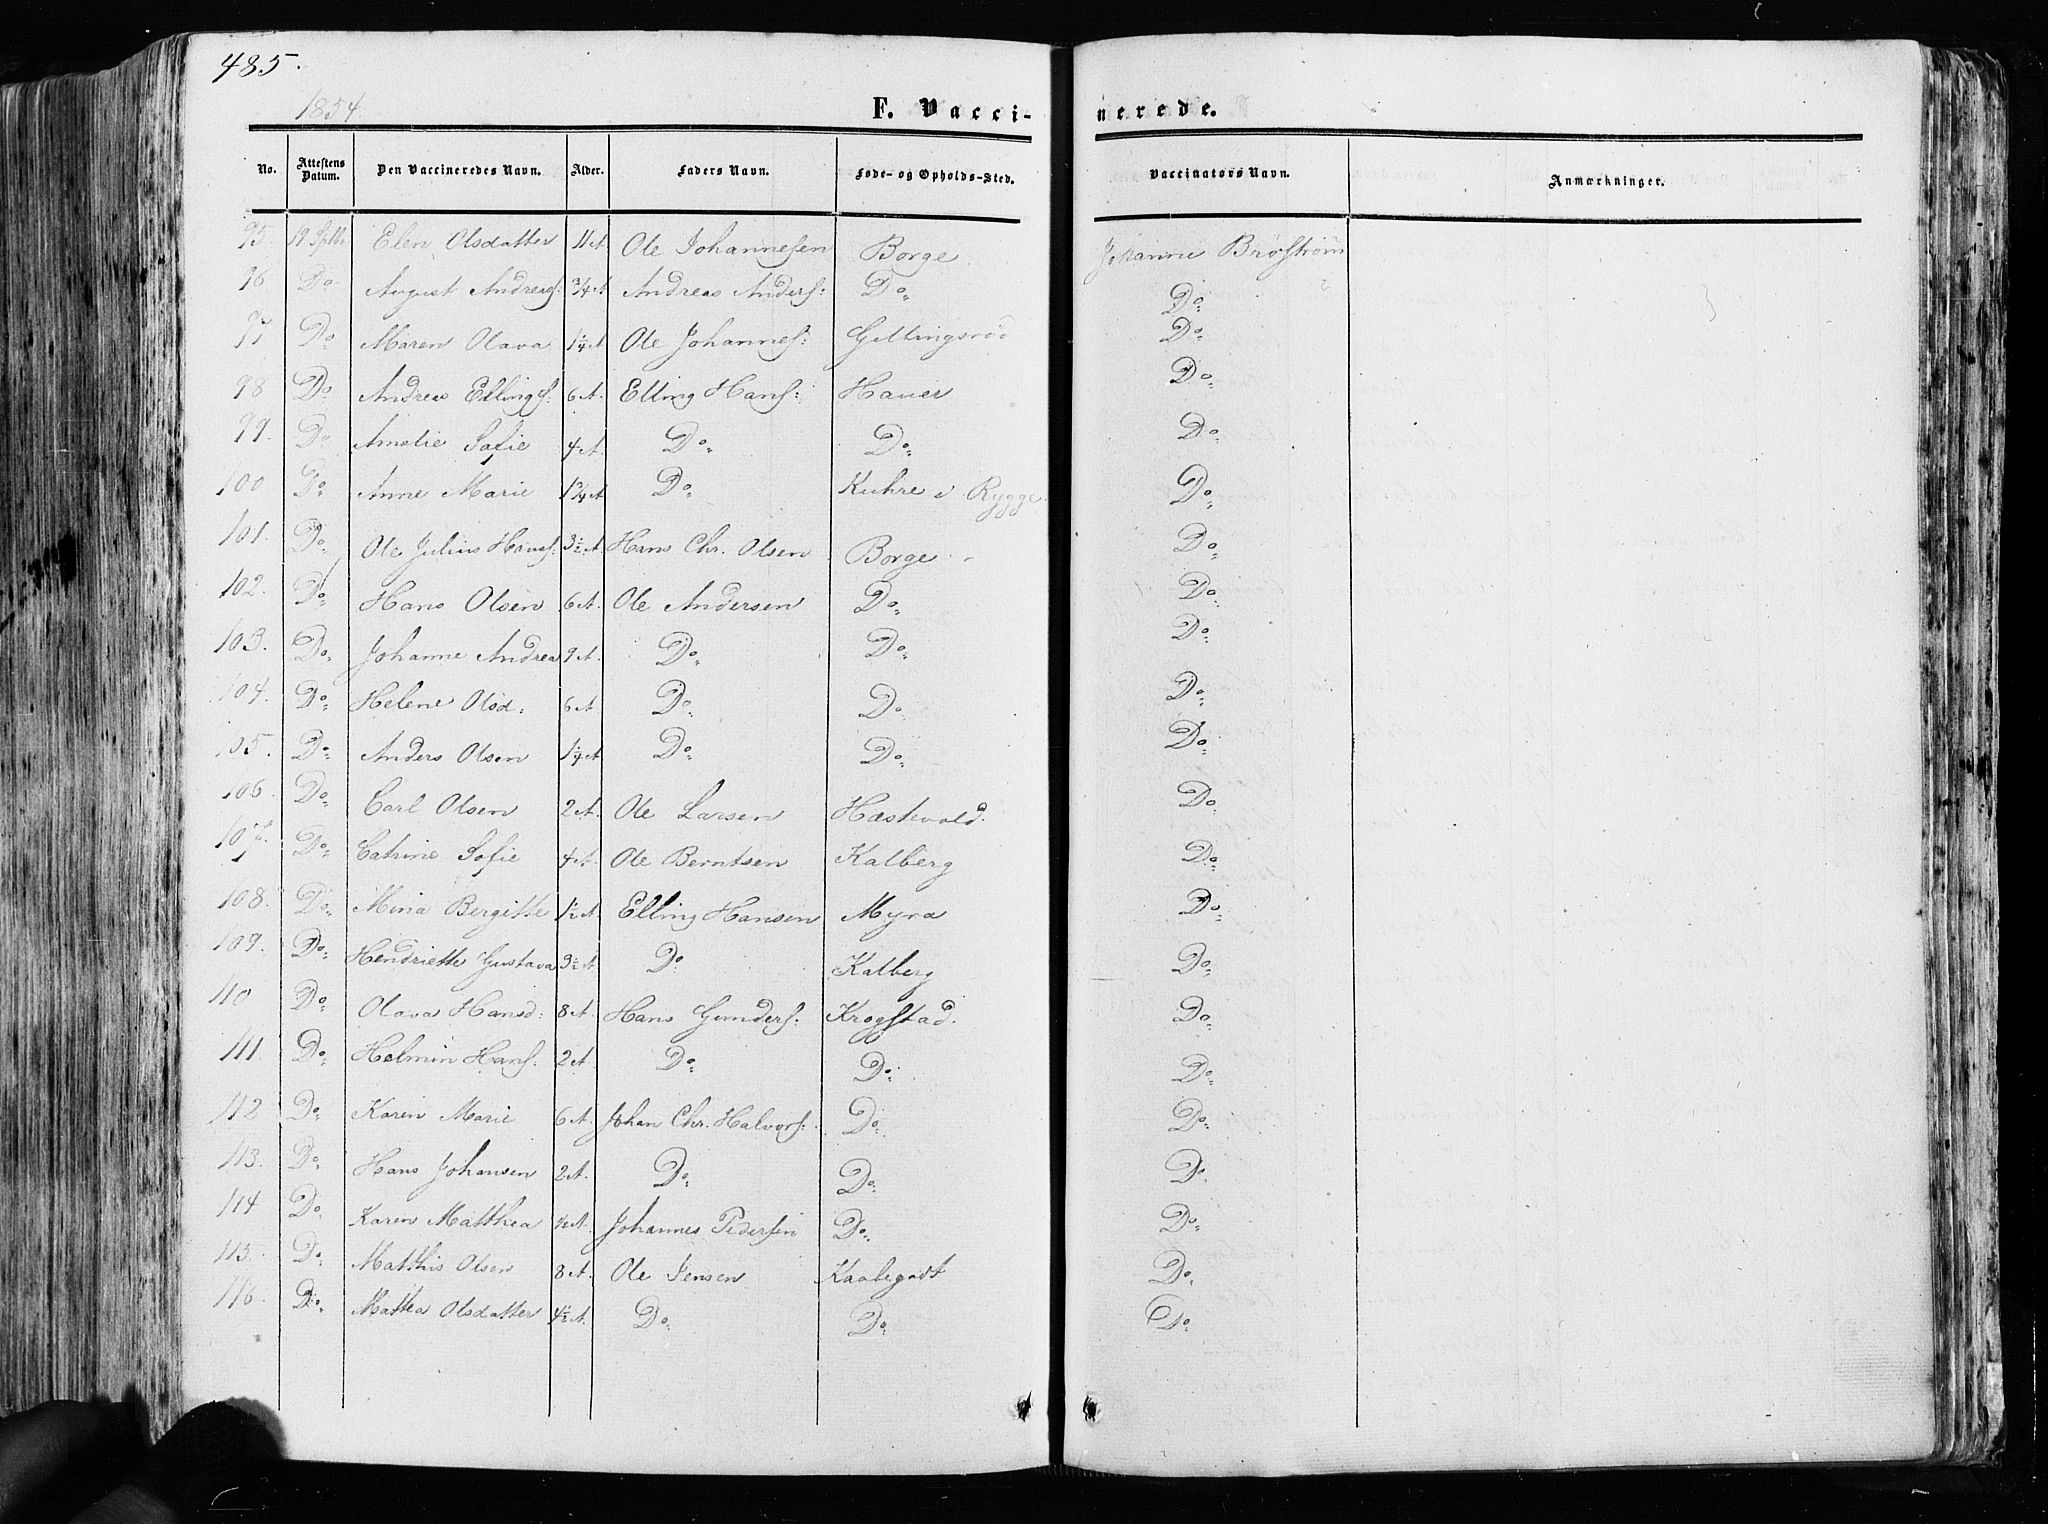 485.
1854
F. Vacci-
nerede.
No. Attestens Datum. Den Vaccineredes Navn. Alder. Faders Navn. Føde- og Opholds-Sted. Vaccinators Navn. Anmærkninger.
95. 19 Sptbr Elen Olsdatter 11 A Ole Johannesen Borge Johanne Broström
96 Do August Andreas: 3/4 A Andreas Anders: Do Do
97 Do Maren Olava 1 1/4 A Ole Johannes: Gillingsröd Do
98 Do Andreas Ellings: 6 A. Elling Hans: Hauer Do
99. Do Amalie Sofie 4 A. Do Do Do
100 Do Anne Marie 1 3/4 A Do Kuhre i Rygge Do
101. Do Ole Julius Hans: 3 1/2 A Hans Chr. Olsen Borge Do
102. Do Hans Olsen 6 A. Ole Andersen Do Do
103. Do Johanne Andrea 9 A. Do Do Do
104. Do Helene Olsd: 6 A. Do Do Do
105. Do Anders Olsen 1 1/4 A Do Do Do
106. Do Carl Olsen 2 A. Ole Larsen Hæstevold. Do
107. Do Catrine Sofie 4 A. Ole Berntsen Kalberg Do
108. Do Mina Bergitte 1 1/2 A. Elling Hansen Myra Do
109. Do Hendriette Gustava 3 1/2 A Do Kalberg Do
110 Do Olava Hansd: 8 A. Hans Gunders: Krogstad. Do
111. Do Helmin Hans: 2 A. Do Do Do
112 Do Karen Marie 6 A. Johan Chr. Halvors: Do Do
113. Do Hans Johansen 2 A. Do Do Do
114 Do Karen Matthea 1/2 A. Johannes Pedersen Do Do
115. Do Matthis Olsen 8 A. Ole Jensen Kaalegadt Do
116. Do Mathea Olsdatter 4 1/2 A. Do Do Do